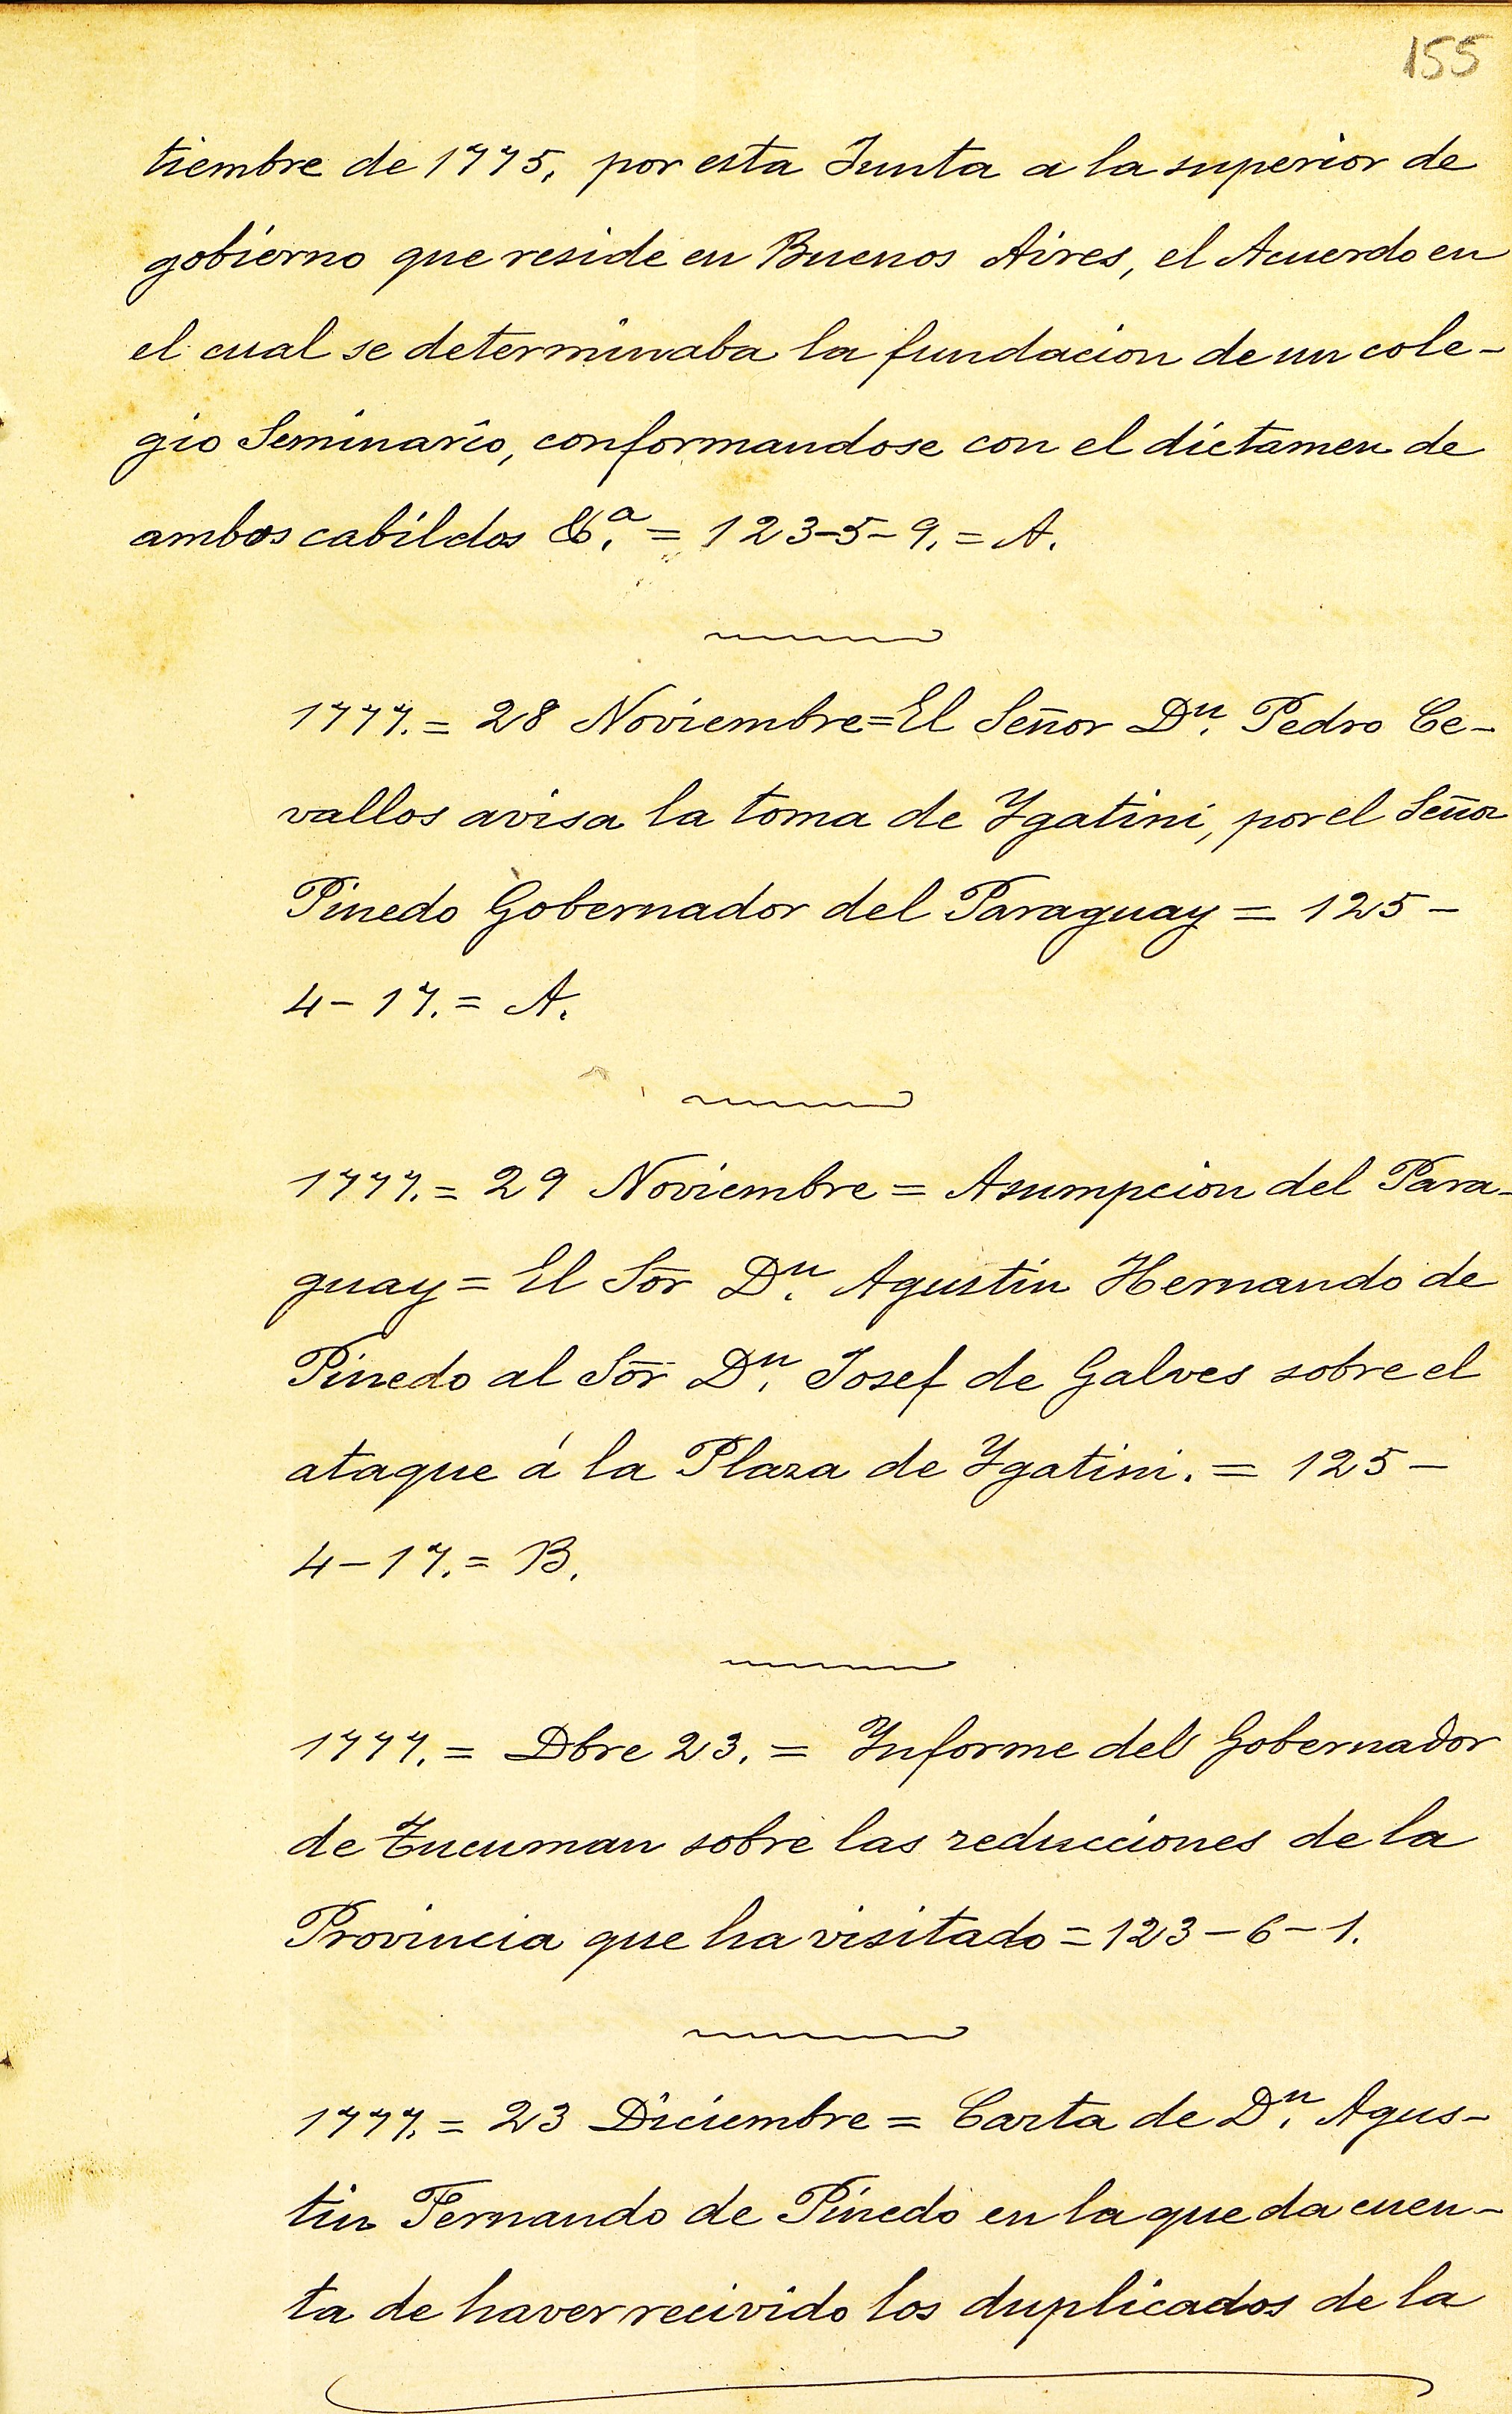 155
tiembre de 1775, por esta Junta a la superior de
gobierno que reside en Buenos Aires, el Acuerdo en
el cual se determinaba la fundacion de un cole-
gio Seminario, conformandose con el dictamen de
ambos cabildos &.ª = 123-5-9. = A.
1777. = 28 Noviembre = El Señor D.ⁿ Pedro Ce-
vallos avisa la toma de Ygatini, por el Señor
Pinedo Gobernador del Paraguay = 125-
4-17. = A.
1777. = 29 Noviembre = Asumpcion del Para-
guay = El Sōr D.ⁿ Agustin Hernando de
Pinedo al Sōr D.ⁿ Josef de Galves sobre el
ataque á la Plaza de Ygatini. = 125-
4-17. = B.
1777. = Dbre 23. = Informe del Gobernador
de Tucuman sobre las reducciones de la
Provincia que ha visitado = 123-6-1.
1777. = 23 Diciembre = Carta de D.ⁿ Agus-
tin Fernando de Pinedo en la que da cuen-
ta de haver recivido los duplicados de la